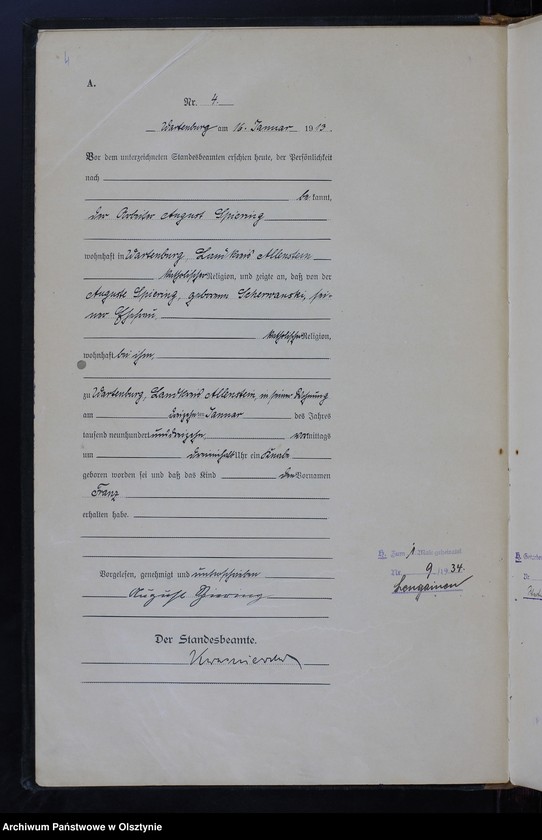 4
A.
Nr. 4.
Wartenburg am 16. Januar 1913.
Vor dem unterzeichneten Standesbeamten erschien heute, der Persönlichkeit
nach
be kannt,
der Arbeiter August Spiering
wohnhaft in Wartenburg, Landkreis Allenstein
katholischer Religion, und zeigte an, daß von der
Auguste Spiering, geborene Scherwanski, sei-
ner Ehefrau,
katholischer Religion,
wohnhaft bei ihm,
zu Wartenburg, Landkreis Allenstein, in seiner Wohnung
am dreizehnten Januar des Jahres
tausend neunhundert und dreizehn vormittags
um dreieinhalb Uhr ein Knabe
geboren worden sei und daß das Kind den Vornamen
Franz
erhalten habe.
Vorgelesen, genehmigt und unterschrieben
August Spiering
Der Standesbeamte.
H. Nr. 9/1934.
Lengainen
Archiwum Państwowe w Olsztynie